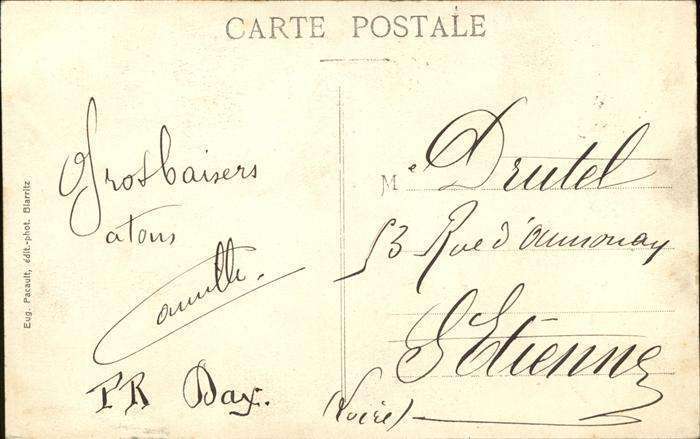 CARTE POSTALE
Gros baisers
a tous
Camille.
PR Dax.
Me Drutel
53 Rue d'Annonay
St Etienne
(Loire)
Eug. Pacault, édit.-phot. Biarritz